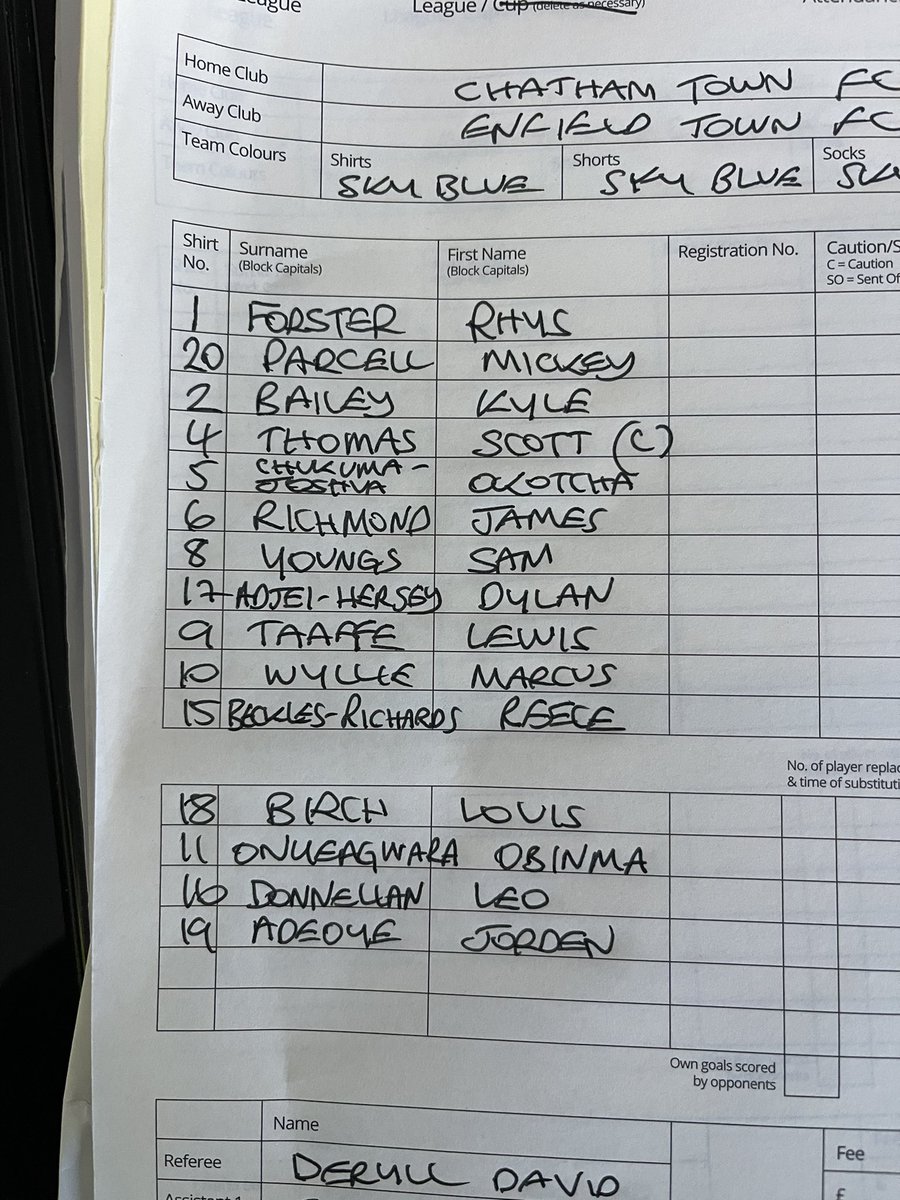 League / Cup (delete as necessary)
Home Club CHATHAM TOWN FC
Away Club ENFIELD TOWN FC
Team Colours Shirts SKY BLUE Shorts SKY BLUE Socks SKY
Shirt No. Surname (Block Capitals) First Name (Block Capitals) Registration No. Caution/S
C = Caution
SO = Sent Of
1 FORSTER RHYS
20 PARCELL MICKEY
2 BAILEY KYLE
4 THOMAS SCOTT (C)
5 CHUKUMA-JOSHUA OCOTCHA
6 RICHMOND JAMES
8 YOUNGS SAM
17 ADJEI-HERSEY DYLAN
9 TAAFFE LEWIS
10 WYLLIE MARCUS
15 BECKLES-RICHARDS REECE
No. of player replac
& time of substituti
18 BIRCH LOUIS
11 ONUEAGWARA OBINMA
16 DONNELLAN LEO
19 ADEOYE JORDEN
Own goals scored
by opponents
Name
Referee DERYLL DAVID
Fee
£